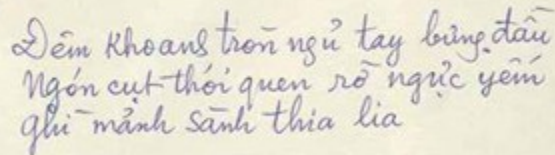 Đêm Khoang trốn ngủ tay bưng đầu
Ngón cụt thói quen rờ ngực yếm
ghì mảnh sành thia lia